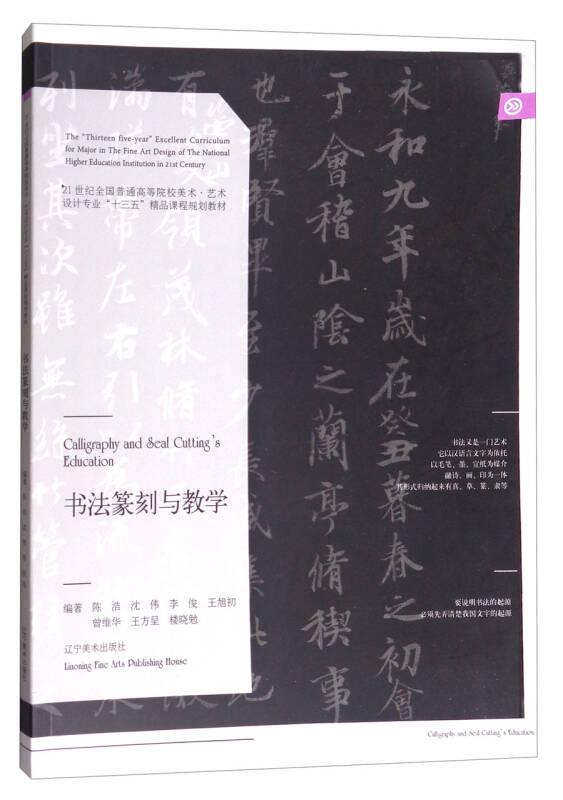 The "Thirteen five-year" Excellent Curriculum
for Major in The Fine Art Design of The National
Higher Education Institution in 21st Century
21世纪全国普通高等院校美术·艺术
设计专业“十三五”精品课程规划教材
Calligraphy and Seal Cutting's
Education
书法篆刻与教学
编著 陈 浩 沈 伟 李 俊 王旭初
曾维华 王方呈 楼晓勉
辽宁美术出版社
Liaoning Fine Arts Publishing House
永和九年歲在癸丑暮春之初會
于會稽山陰之蘭亭脩稧事
也羣賢畢至少長咸集此地
有崇山領茂林脩
湍帶左右引
列坐其次雖無絲竹管
书法又是一门艺术
它以汉语言文字为依托
以毛笔、墨、宣纸为媒介
融诗、画、印为一体
书形式归纳起来有真、草、篆、隶等
要说明书法的起源
必须先弄清楚我国文字的起源
Calligraphy and Seal Cutting's Education
书法篆刻与教学